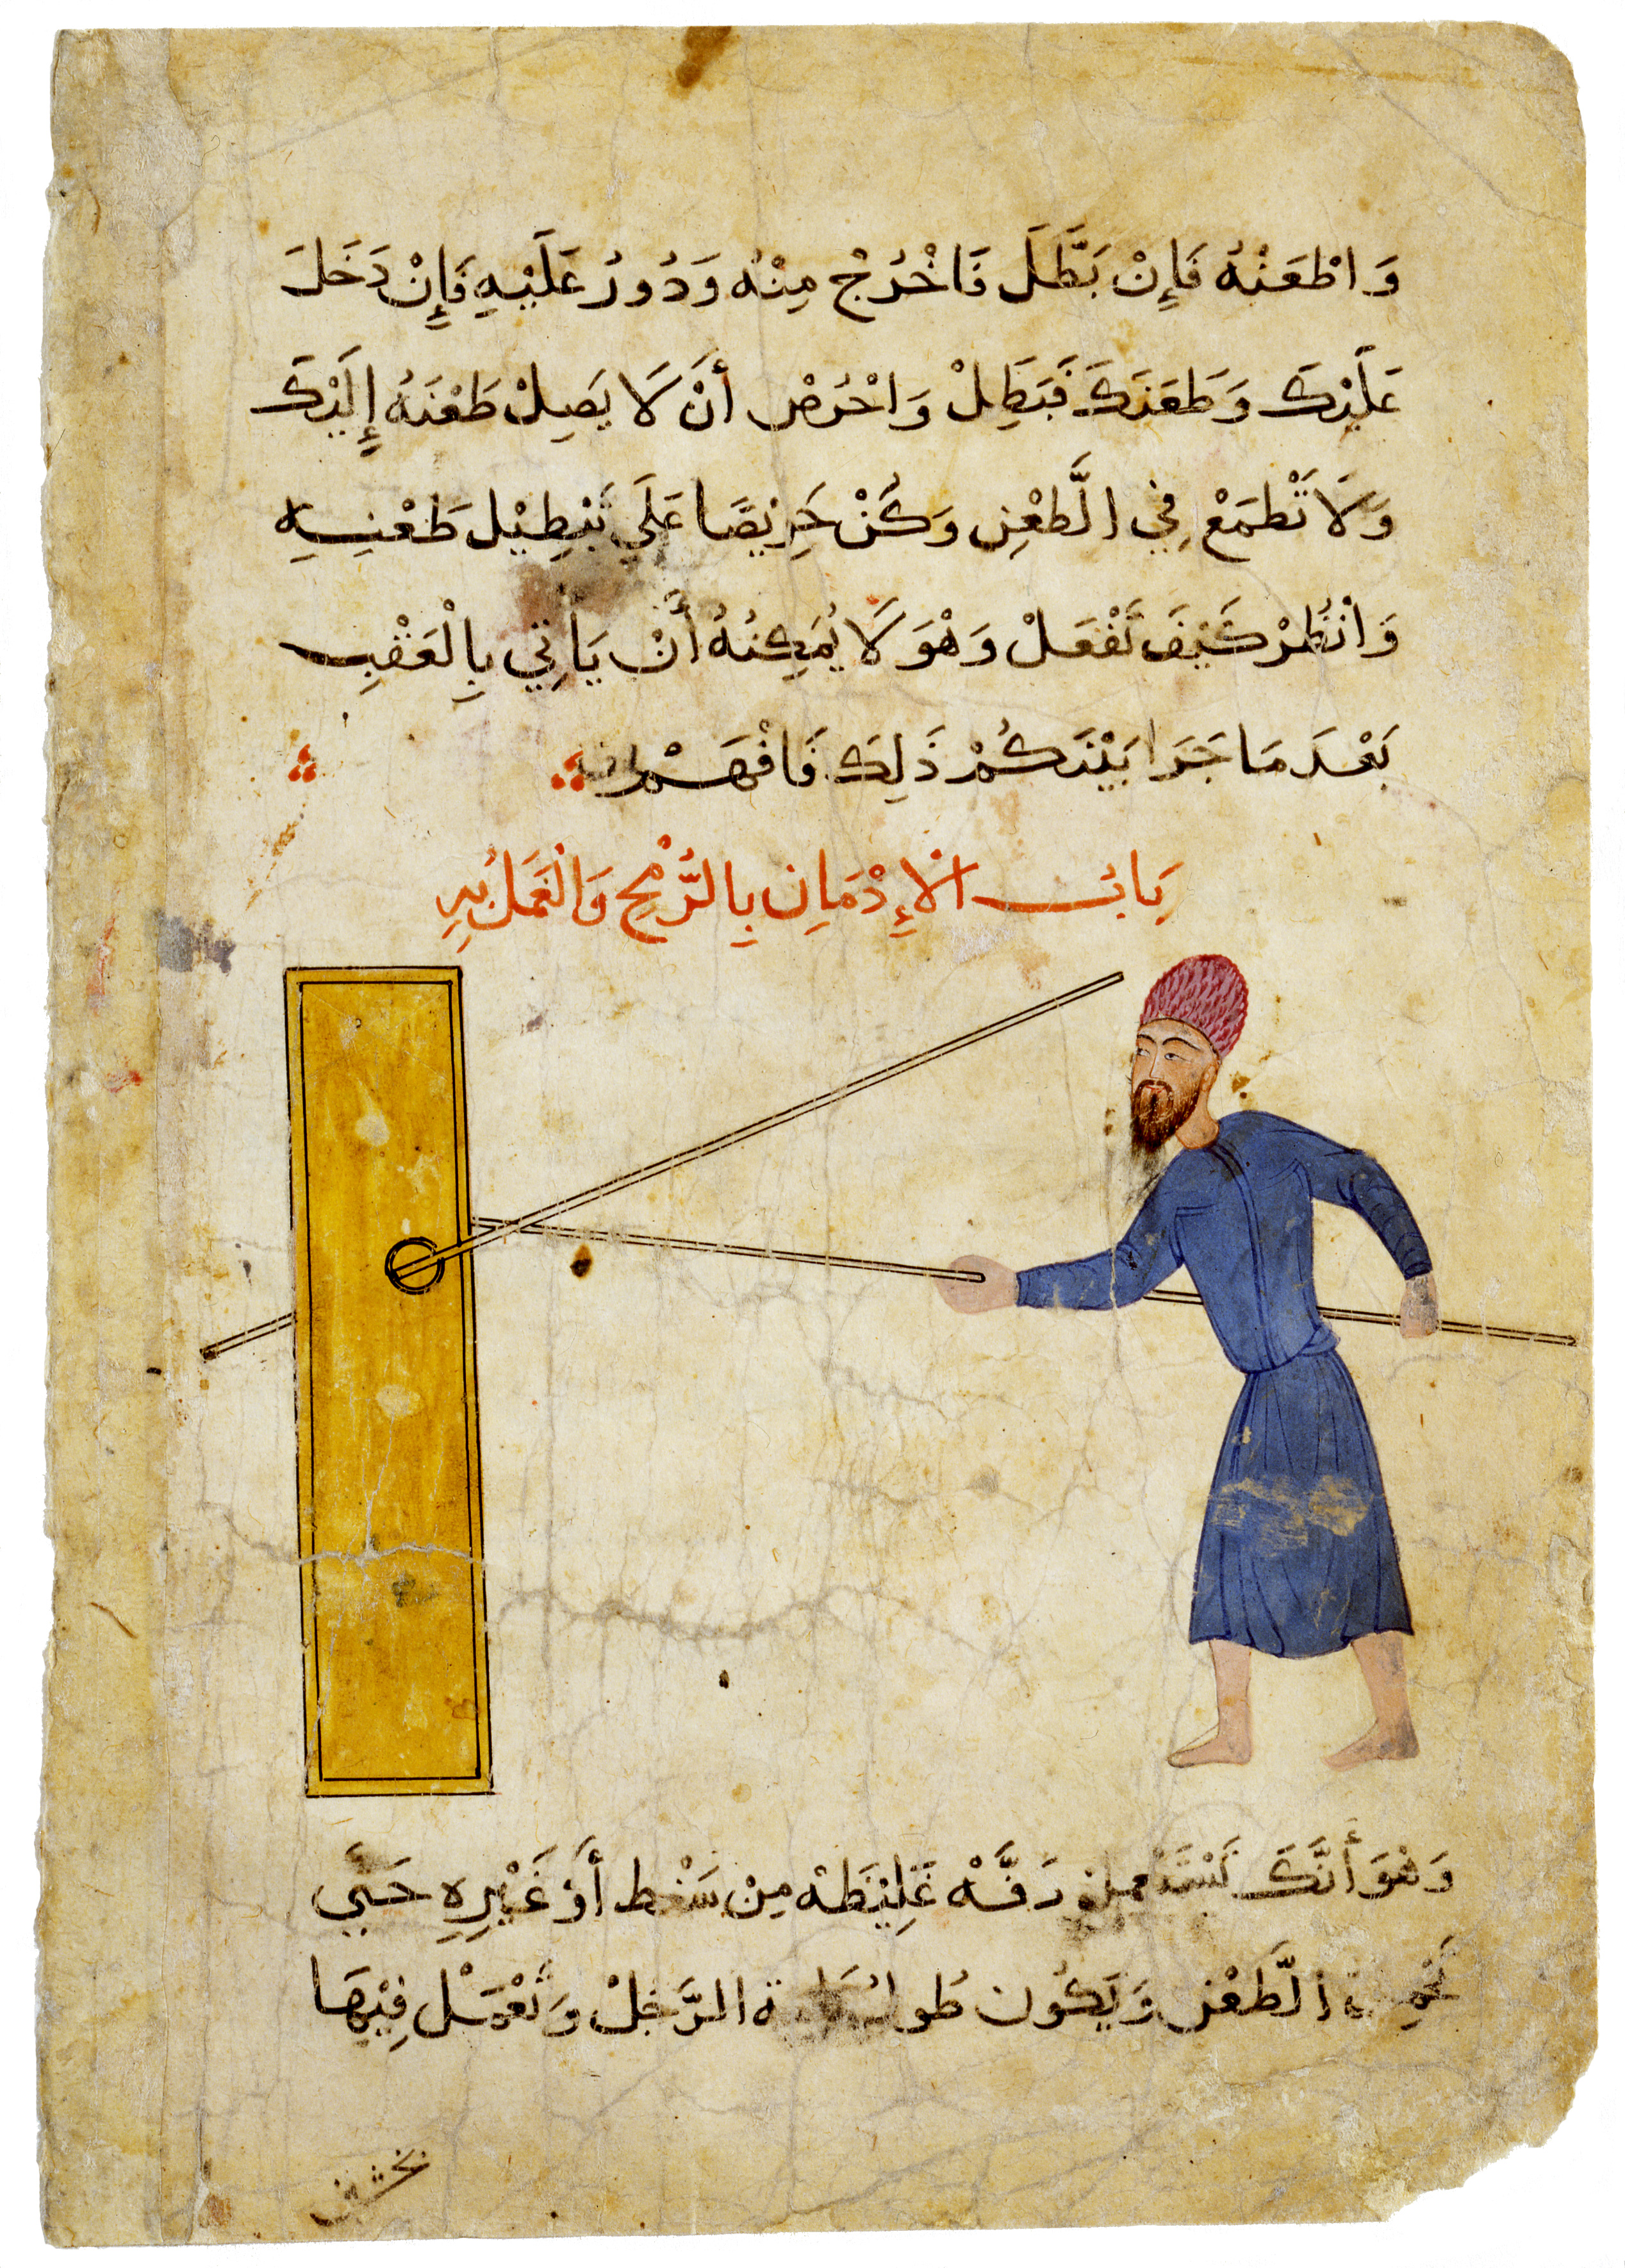 وَاطْعَنْهُ فَإِنْ بَطَّلَ فَاخْرُجْ مِنْهُ وَدُورُ عَلَيْهِ فَإِنْ دَخَلَ
عَلَيْكَ وَطَعَنَكَ فَبَطِلْ وَاحْرُصْ أَنْ لَا يَصِلْ طَعْنَهُ إِلَيْكَ
وَلَا تَطْمَعْ فِي الطَّعْنِ وَكُنْ حَرِيْصًا عَلَي تَبْطِيْل طَعْنِيهِ
وَانْظُرْ كَيْفَ تَفْعَلْ وَهْوَ لَا يُمَكِنُهُ أَنْ يَأتِي بِالْعَقْبِ
بَعْدَ مَا جَرَا بَيْنَكُمْ ذَلِكَ فَافْهَمْ
بَابُ الْإِدْمَانِ بِالرُّمْحِ وَالْعَمَلُ بِهِ
وَهْوَ أَنَّكَ تَسْتَعْمِلْ دَفَّهْ غَلِيْظَهْ مِنْ سَنْط أَوْ غَيْرِهِ حَتَّى
الطَّعْن وَيَكُون طُولُهَا الرَّجُلْ وَتَعْمَلْ فِيْهَا